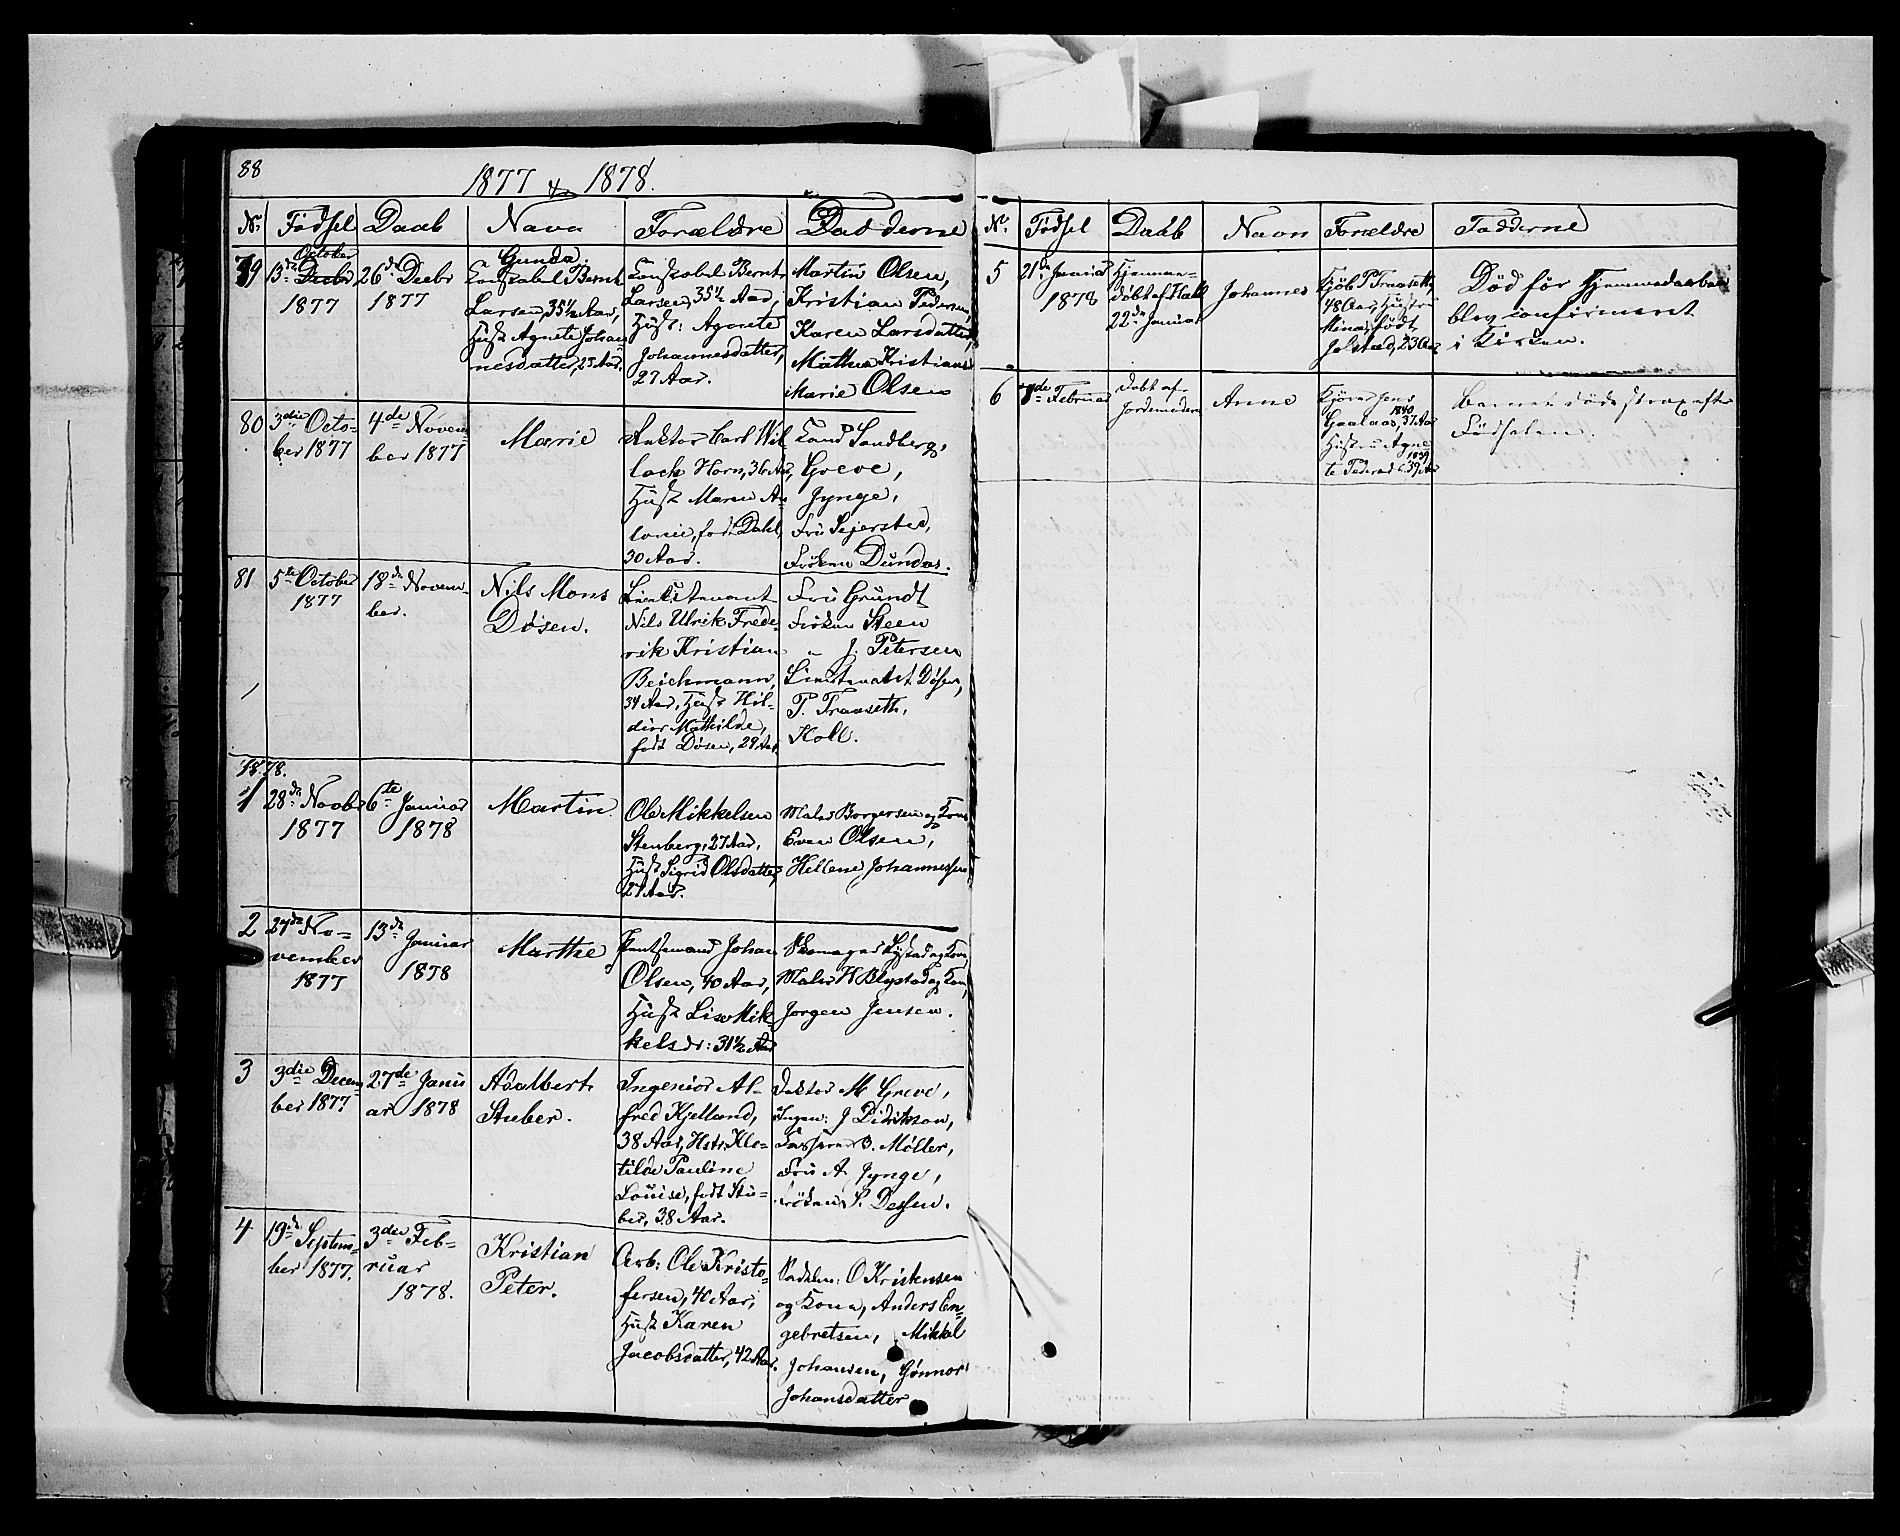 88
1877 & 1878.
Nr. Fødsel Daab Navn Forældre Fadderne
79
October
13de Decbr
1877
26de Decbr
1877
Gunda
Konstabel Bernt
Larsen, 35½ Aar,
Hust: Agnete Johan
nesdatter, 25 Aar.
Konstabel Bernt
Larsen, 35½ Aar,
Hust: Agnete
Johannesdatter,
27 Aar.
Martin Olsen,
Kristian Pedersen,
Karen Larsdatter,
Mathea Kristians
Marie Olsen
80
3die Octo-
ber 1877
4de Novem
ber 1877
Marie
Doktor Carl Wil
Horn, 36 Aar,
Hust Maren An
tonie, født Dahl,
30 Aar.
Sandberg,
Greve,
Jynge,
Fru Sejersted,
Frøken Dundas.
81
5te October
1877
18de Novem-
ber.
Nils Mons
Døsen.
Nils Ulrik Frede-
rik Kristian
Beichmann,
34 Aar, Hust: Hil-
Mathilde,
født Døsen, 29 Aar
Fru Grundt
Frøken Steen
" J. Petersen
Lieutenant Døsen,
P. Traaseth,
Holl.
1878.
1
28de Novbr
1877
6te Januar
1878
Martin
Ole Mikkelsen
Stenberg, 27 Aar,
Hust Sigrid Olsdatter,
27 Aar.
Maler Borgersen og Kone
Even Olsen,
Hellene Johannessen
2
27de No-
vember
1877
13de Januar
1878
Marthe
Johan
Olsen, 40 Aar,
Hust Lise Mik-
kelsdr: 31½ Aar
Skomager og Kone
Maler H Blystad og Kone,
Jørgen Jensen.
3
3die Decem
ber 1877
27de Janu
ar 1878
Adalbert
Stuber.
Ingeniør Al-
fred Kjelland,
38 Aar, Hstr. Klo-
tilde Pauline
Louise, født Stu-
ber, 38 Aar.
Doktor M Greve,
Ingen: J Didrikson,
B. Møller,
Fru A Jynge,
Frøken S. Dessen.
4
19de Septem-
ber 1877.
3die Feb-
ruar
1878.
Kristian
Peter.
Arb: Ole Kristo-
fersen, 40 Aar,
Hust Karen
Jacobsdatter, 42 Aar.
O Kristensen
og Kone, Anders En-
gebretsen, Mikkel
Johansen, Gønnor
Johansdatter
Nr. Fødsel Daab Navn Forældre Fadderne
5
21de Januar
1878
Hjemme-
døbt af Holl
22de Januar
Johannes
Kjøb P Traaseth,
48 Aar, Hustru
Mina, født
Jolstad, 23 Aar
Død før Hjemmedaaben
blev confirmeret
i Kirken.
6
7de Februar
døbt af
Jordemoderen
Anne
Jens
1840
Gaalaas, 37 Aar
Hustru Agne
1839
te Pedersd. 39 Aar
Barnet døde strax efter
Fødselen.